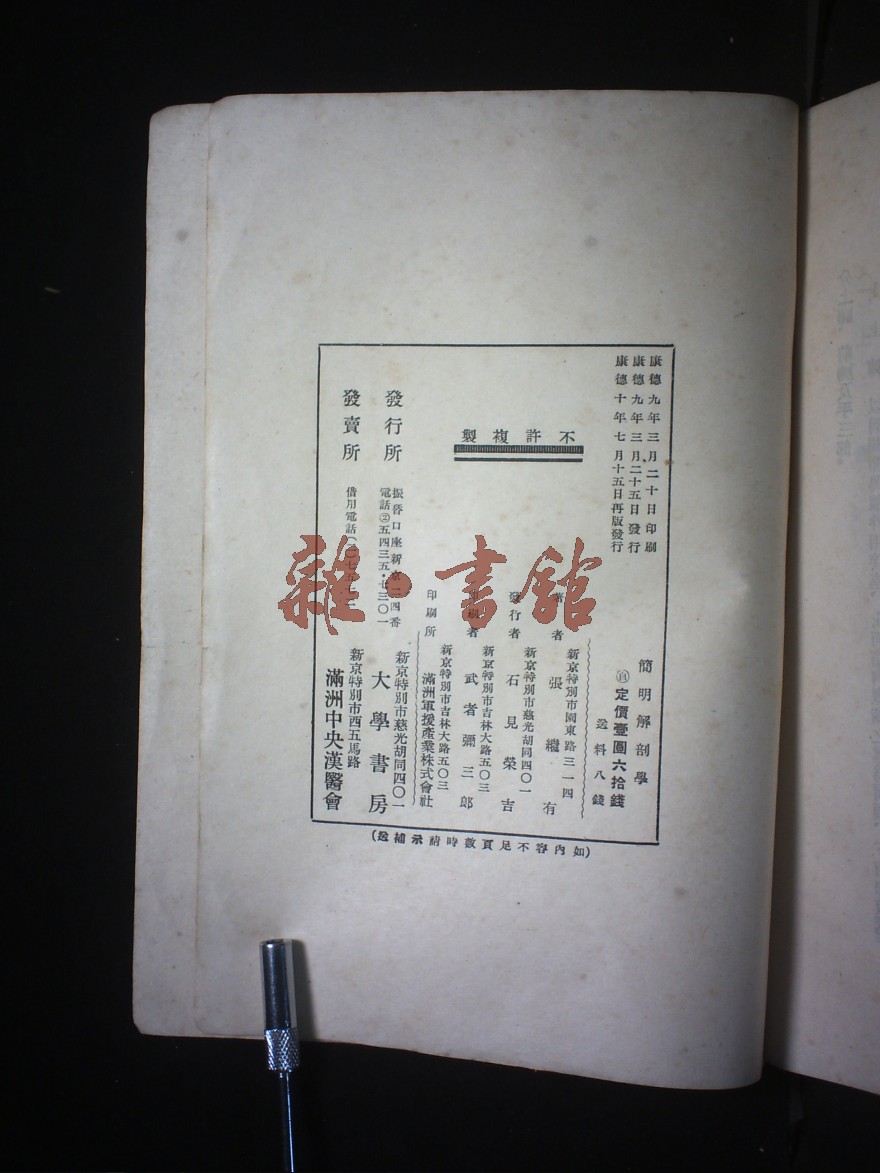 康德九年三月二十日印刷
康德九年三月二十五日發行
康德十年七月十五日再版發行
不許複製
簡明解剖學
定價壹圓六拾錢
送料八錢
著者
新京特別市園東路三一四
張繼有
發行者
新京特別市慈光胡同四〇一
石見榮吉
新京特別市吉林大路五〇三
武者彌三郎
印刷所
新京特別市吉林大路五〇三
滿洲軍援產業株式會社
發行所
振替口座新京二四番
電話②五四三五・七三〇一
新京特別市慈光胡同四〇一
大學書房
發賣所
借用電話
新京特別市西五馬路
滿洲中央漢醫會
(如內容不足頁數時請示補送)
雜·書館